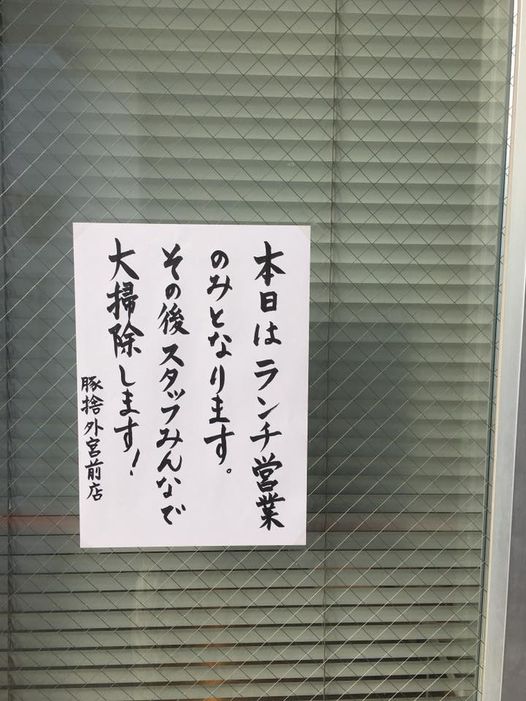 本日はランチ営業
のみとなります。
その後スタッフみんなで
大掃除します！
豚捨外宮前店